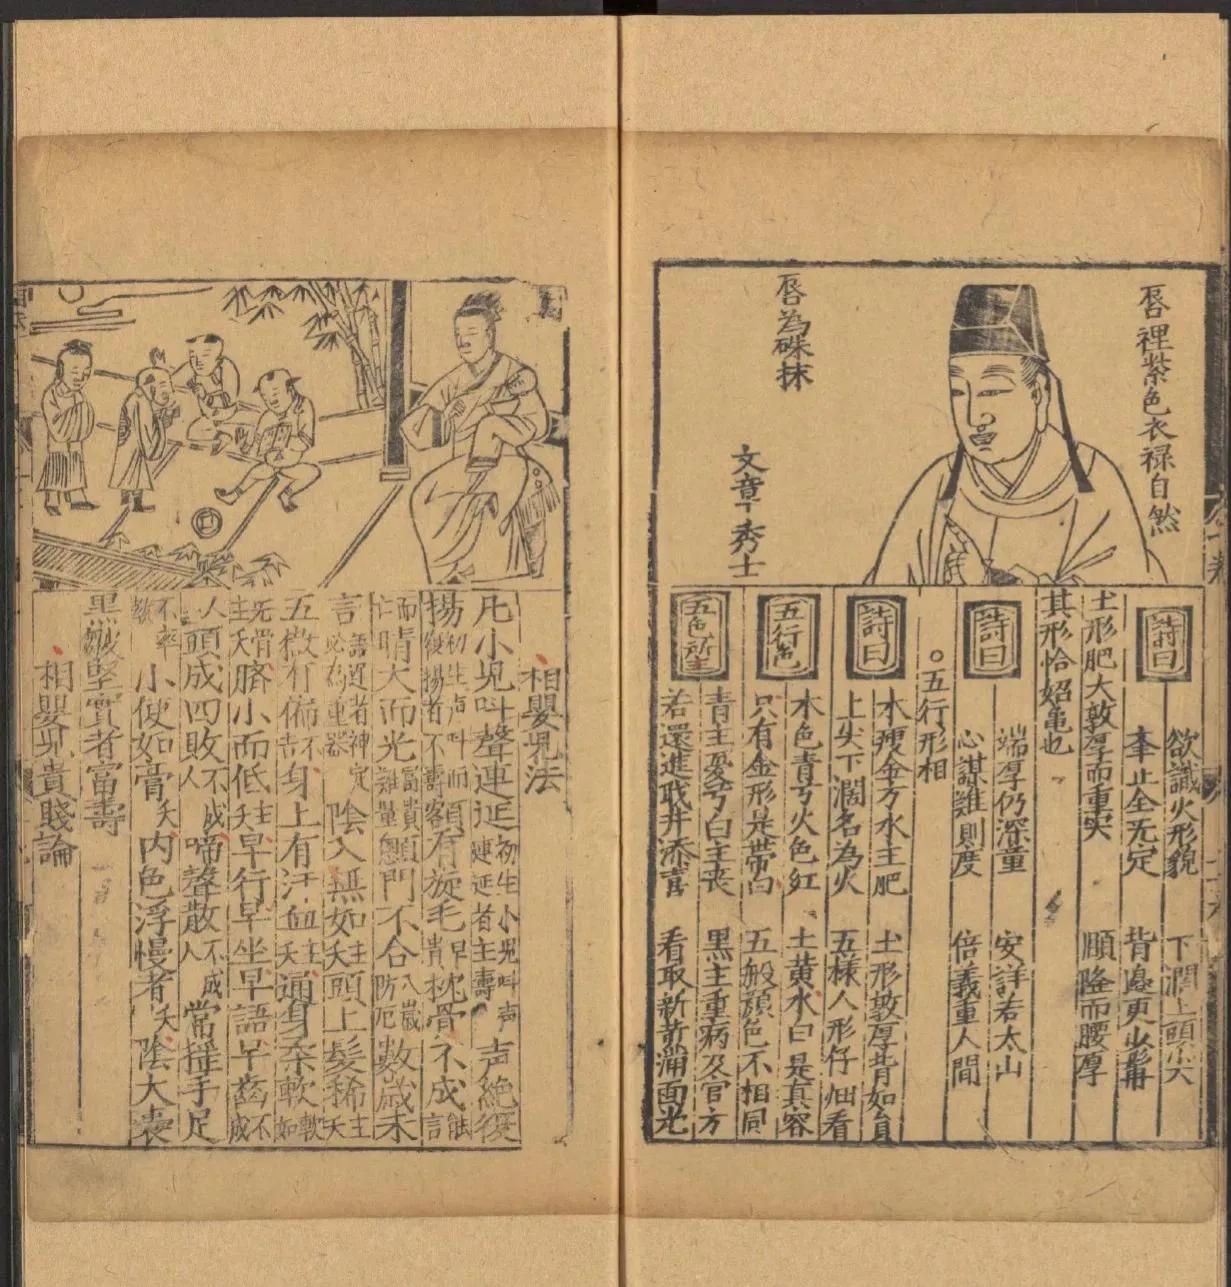 唇裡紫色衣祿自然
唇為硃抹
文章秀士
詩曰
欲識火形貌 下濶上頭尖
㪯止全无定 背邉更少髯
土形肥大敦厚而重実 頤隆而腰厚
其形恰如龜也
詩曰
端厚仍深重 安詳若太山
心謀難則度 倍義重人間
○五行形相
詩曰
木瘦金方水主肥 土形敦厚背如負
上尖下濶名為火 五樣人形仔细看
五行色
木色青兮火色紅 土黃水曰是真容
只有金形是帶白 五般顔色不相同
五色所主
青主憂兮白主丧 黑主重病及官方
若還進职并添喜 看取新黄滿面光
相嬰児法
凡小児叫聲連延初生小児叫声連延者主壽声絶復
揚初生声叫而復揚者不壽額有旋毛早貴枕骨不成能言
而亡睛大而光富貴難量顖門不合八歲防厄數歲未
言語遲者神定必為重器陰入無如主夭頭上髮稀主夭
五微有備不吉身上有汗血主夭通身柔軟軟如
无骨主夭臍小而低主夭早行早坐早語早齒不成
人頭成四敗不成人啼聲散不成人常揺手足
不率教小便如膏夭肉色浮慢者夭陰大囊
黑皺堅實者富壽
相嬰児貴賤論